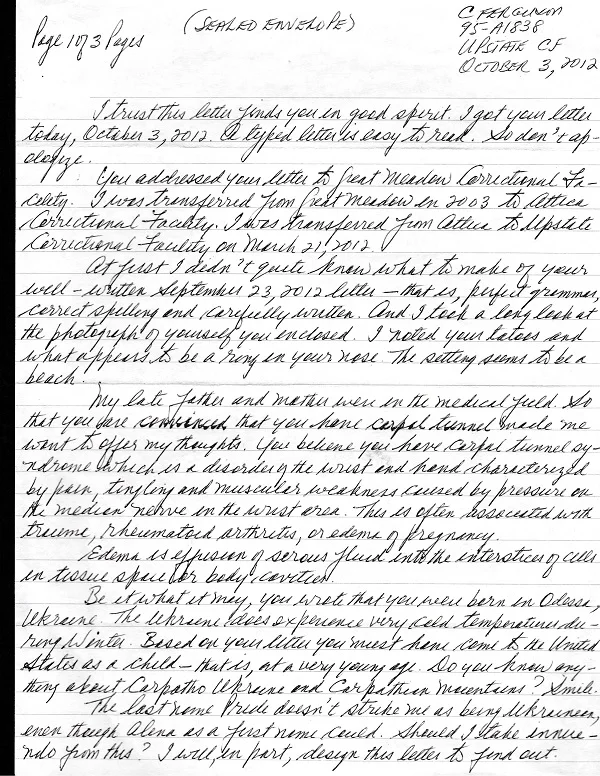 (SEALED ENVELOPE)
C FERGUSON
95-A1838
UPSTATE CF
OCTOBER 3, 2012
Page 1 of 3 Pages
I trust this letter finds you in good spirit. I got your letter
today, October 3, 2012. A typed letter is easy to read. So don't ap-
ologize.
You addressed your letter to Great Meadow Correctional Fa-
cility. I was transferred from Great Meadow in 2003 to Attica
Correctional Facility. I was transferred from Attica to Upstate
Correctional Facility on March 21, 2012
At first I didn't quite know what to make of your
well-written September 23, 2012 letter – that is, perfect grammar,
correct spelling and carefully written. And I took a long look at
the photograph of yourself you enclosed. I noted your tatoos and
what appears to be a ring in your nose. The setting seems to be a
beach.
My late father and mother were in the medical field. So
that you are convinced that you have carpal tunnel made me
want to offer my thoughts. You believe you have carpal tunnel sy-
ndrome which is a disorder of the wrist and hand characterized
by pain, tingling and muscular weakness caused by pressure on
the median nerve in the wrist area. This is often associated with
trauma, rheumatoid arthritis, or edema of pregnancy.
Edema is effusion of serous fluid into the interstices of cells
in tissue space or body cavities.
Be it what it may, you wrote that you were born in Odessa,
Ukraine. The Ukraine does experience very cold temperatures du-
ring Winter. Based on your letter you must have come to the United
States as a child – that is, at a very young age. Do you know any-
thing about Carpatho Ukraine and Carpathian Mountains? Smile.
The last name Pride doesn't strike me as being Ukrainean,
even though Alena as a first name could. Should I take innue-
ndo from this? I will, in part, design this letter to find out.